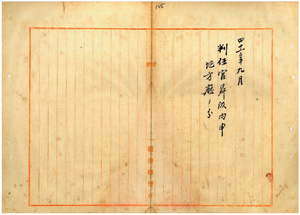 四十二年九月
判任官昇級内申
地方廳ノ分